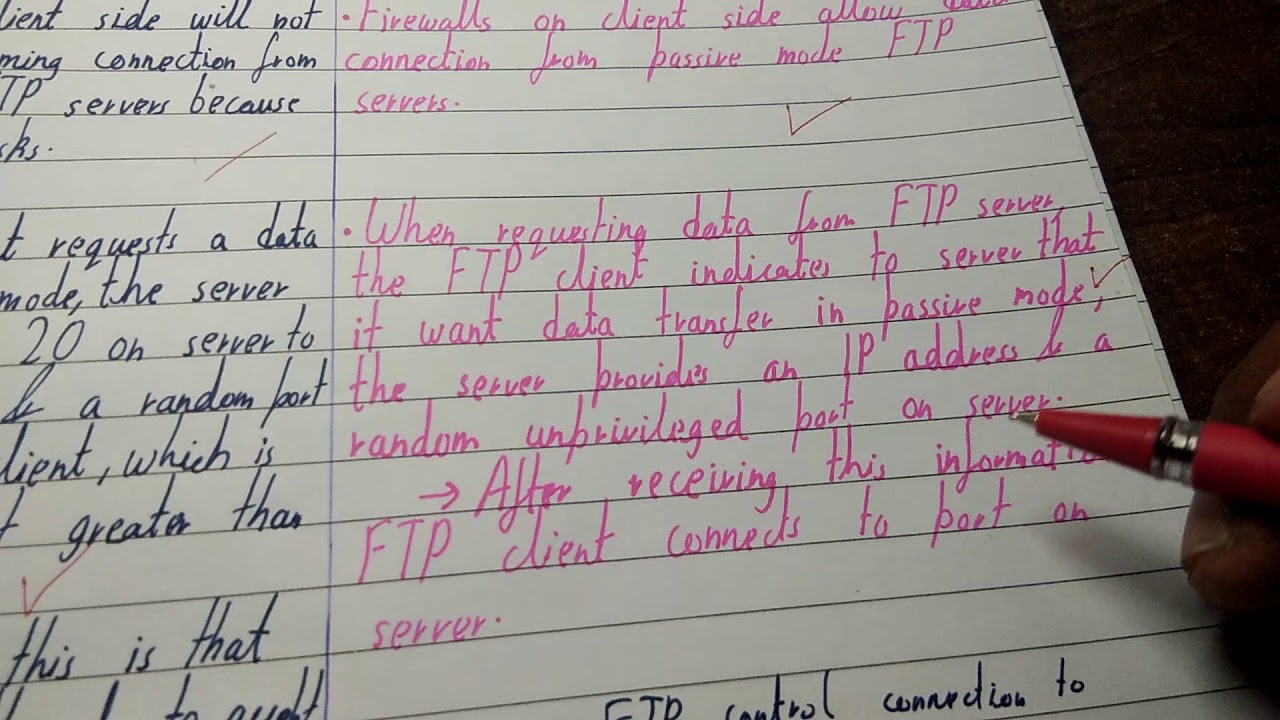 lient side will not
ming connection from
TP servers because
sks.
t requests a data
mode, the server
20 on server to
& a random port
lient, which is
t greater than
this is that
• Firewalls on client side allow data
connection from passive mode FTP
servers.
• When requesting data from FTP server,
the FTP client indicates to server that
it want data transfer in passive mode,
the server provides an IP address & a
random unprivileged port on server.
→ After receiving this informati
FTP client connects to port on
server.
FTP control connection to